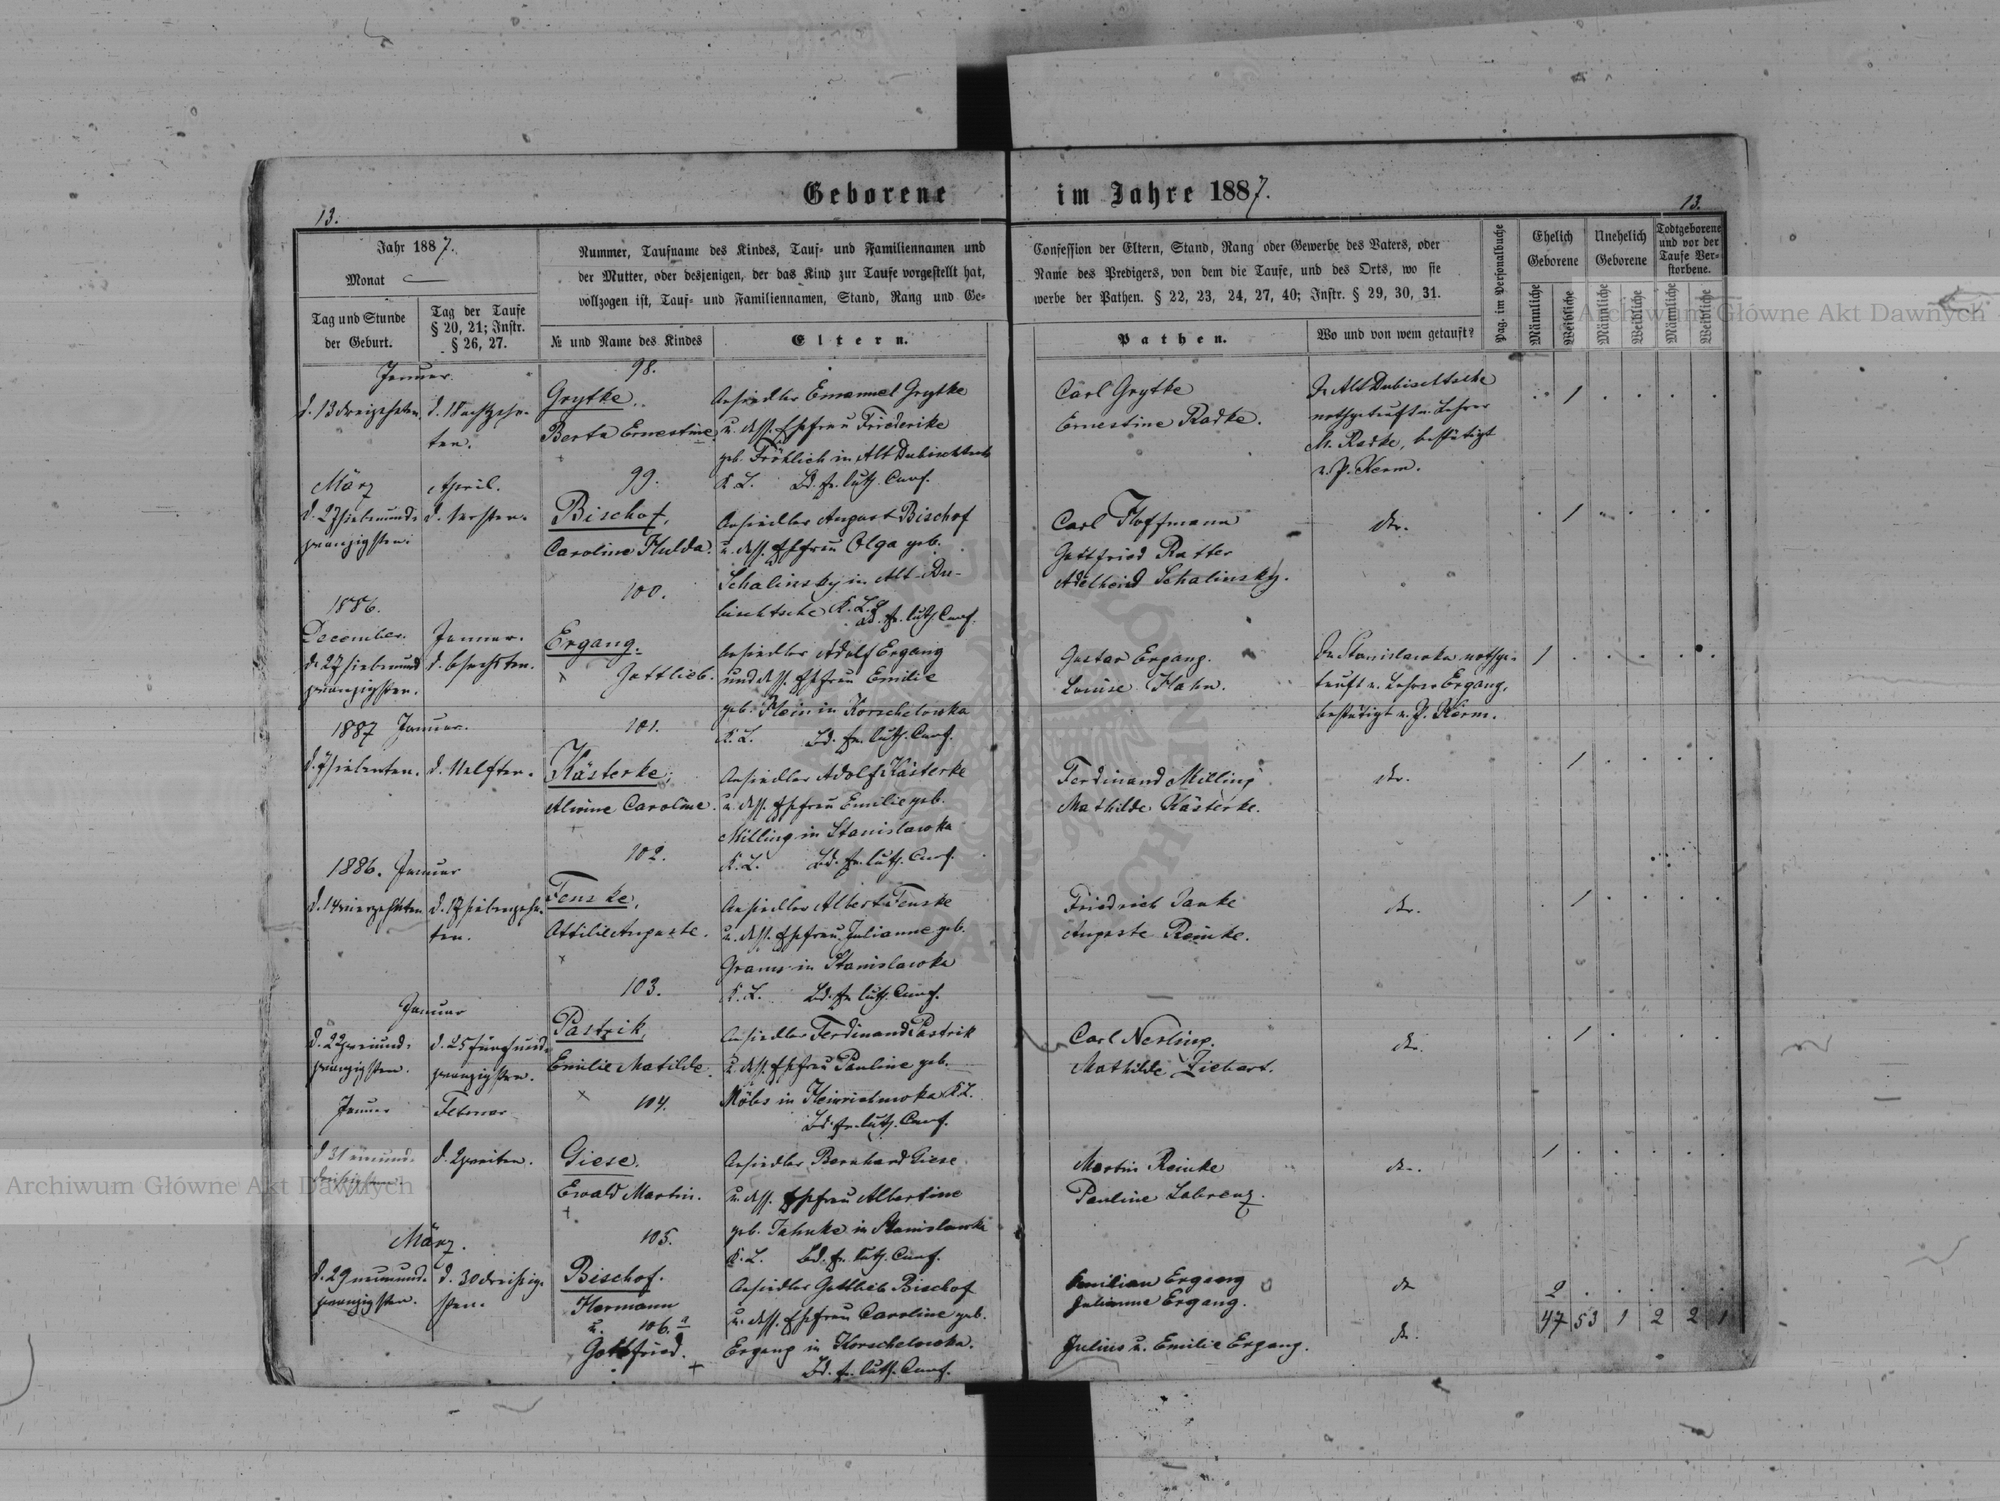 Geborene im Jahre 1887.
13.
13.
Jahr 1887.
Monat
Tag und Stunde
der Geburt.
Tag der Taufe
§ 20, 21; Instr.
§ 26, 27.
Nummer, Taufname des Kindes, Tauf- und Familiennamen und
der Mutter, oder desjenigen, der das Kind zur Taufe vorgestellt hat,
vollzogen ist, Tauf- und Familiennamen, Stand, Rang und Ge-
№ und Name des Kindes
Eltern.
Confession der Eltern, Stand, Rang oder Gewerbe des Vaters, oder
Name des Predigers, von dem die Taufe, und des Orts, wo sie
werbe der Pathen. § 22, 23, 24, 27, 40; Instr. § 29, 30, 31.
Pathen.
Wo und von wem getauft?
Pag. im Personalbuche
Ehelich
Geborene
Männliche
Weibliche
Unehelich
Geborene
Männliche
Weibliche
Todtgeborene
und vor der
Taufe Ver-
storbene.
Männliche
Weibliche
Januar.
d. 13 dreizehnten
d. 18 achtzehn-
ten.
98.
Grytke
Berta Ernestine
Ansiedler Emanuel Grytke
u. dess. Ehefrau Friederike
geb. Fröhlich in Alt Dubischtsche
K. L. Bd. ev. luth. Conf.
Carl Grytke
Ernestine Radke.
In Alt Dubischtsche
nothgetauft v. Lehrer
M. Radke, bestätigt
v. P. Kerm.
1
März
d. 27 siebenund-
zwanzigsten.
April.
d. ersten.
99.
Bischof,
Caroline Hulda.
Ansiedler August Bischof
u. dess. Ehefrau Olga geb.
Schalinsky in Alt-Du-
bischtsche K. L.
Bd. ev. luth. Conf.
Carl Hoffmann
Gottfried Ratter
Adelheid Schalinsky.
do.
1
1886.
December.
d. 27 siebenund
zwanzigsten.
Januar.
d. 6 sechsten.
100.
Ergang.
Gottlieb.
Ansiedler Adolf Ergang
und dess. Ehefrau Emilie
geb. Klein in Korschelowka
K. L. Bd. ev. luth. Conf.
Gustav Ergang.
Louise Hahn.
In Stanislawka nothge-
tauft v. Lehrer Ergang,
bestätigt v. P. Kerm.
1
1887 Januar.
d. 7 siebenten.
d. 11 elften.
101.
Kästerke,
Alwine Caroline.
Ansiedler Adolf Kästerke
u. dess. Ehefrau Emilie geb.
Milling in Stanislawka
K. L. Bd. ev. luth. Conf.
Ferdinand Milling
Mathilde Kästerke.
do.
1
1886. Januar
d. 14 vierzehnten
d. 17 siebenzehn-
ten.
102.
Fenske,
Ottilie Auguste.
Ansiedler Albert Fenske
u. dess. Ehefrau Julianne geb.
Grams in Stanislawka
K. L. Bd. ev. luth. Conf.
Friedrich Janke
Auguste Reinke.
do.
1
Januar
d. 22 zweiund-
zwanzigsten.
d. 25 fünfund-
zwanzigsten.
103.
Pastrik,
Emilie Matilde.
Ansiedler Ferdinand Pastrik
u. dess. Ehefrau Pauline geb.
Möbs in Heinrichowka K. L.
Bd. ev. luth. Conf.
Carl Nerling.
Mathilde Ziebart.
do.
1
Januar
d. 31 einund-
dreißigsten.
Februar
d. 2 zweiten.
104.
Giese.
Ewald Martin.
Ansiedler Bernhard Giese
u. dess. Ehefrau Albertine
geb. Jahnke in Stanislawka
K. L. Bd. ev. luth. Conf.
Martin Reinke
Pauline Labrenz.
do.
1
März.
d. 29 neunund-
zwanzigsten.
d. 30 dreißig-
sten.
105.
Bischof.
Hermann
u. 106.
Gottfried.
Ansiedler Gottlieb Bischof
u. dess. Ehefrau Caroline geb.
Ergang in Korschelowka.
Bd. ev. luth. Conf.
Emilian Ergang
Julianna Ergang.
Julius u. Emilie Ergang.
do
do.
2
47 53 1 2 2 1
Archiwum Główne Akt Dawnych
Archiwum Główne Akt Dawnych